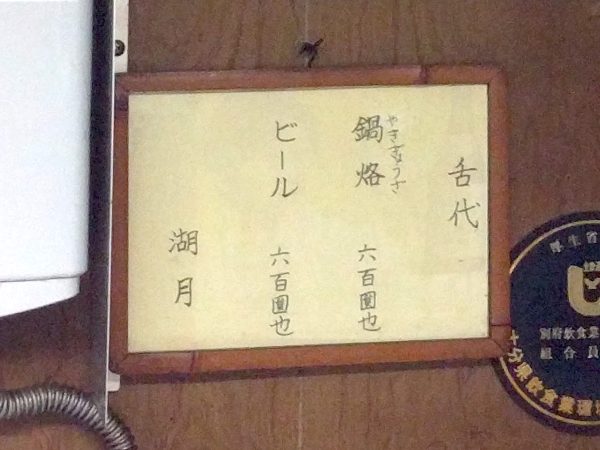 舌代
やきぎょうざ
鍋烙 六百圓也
ビール 六百圓也
湖月
厚生省
別府飲食業
組合員
大分県飲食業環